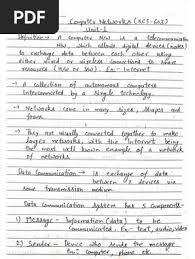 PDF
Computer Networks (KCS-603)
Unit-1
Definition → A computer N/w is a telecommunication
N/w, which allows digital devices (nodes)
to exchange data between each other using
either wired or wireless connections to share
resources (H/w or S/w) Ex:- Internet
→ A collection of autonomous computers
interconnected by a single technology.
→ Networks come in many sizes, shapes and
forms.
→ They are usually connected together to make
larger networks, with the Internet being
the most well known example of a network
of networks
Data Communication → is exchange of data
between devices via
some transmission medium
Data Communication system has 5 components-
1) Message - Information (data) to be
communicated. Ex- text, audio, video
2) Sender - Device who sends the message
Ex: computer, phone etc.